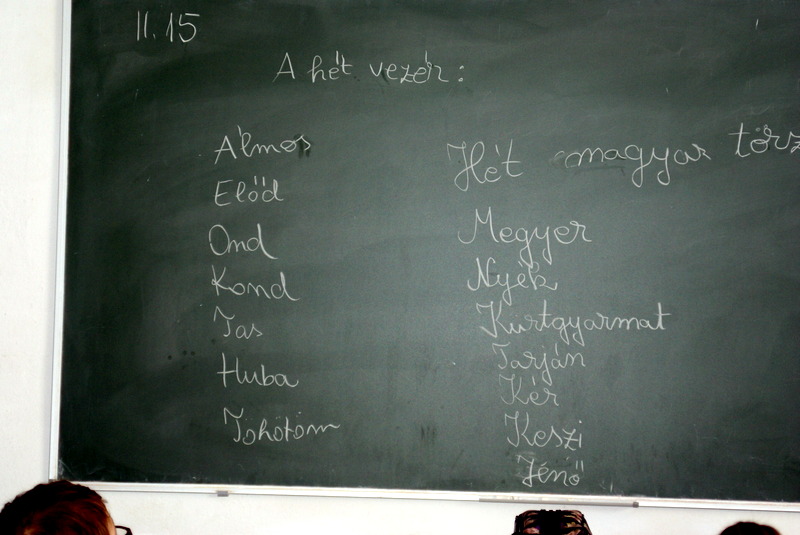 11.15
A hét vezér:
Álmos
Előd
Ond
Kond
Tas
Huba
Tohötöm
Hét magyar törz
Megyer
Nyék
Kurtgyarmat
Tarján
Kér
Keszi
Jenő